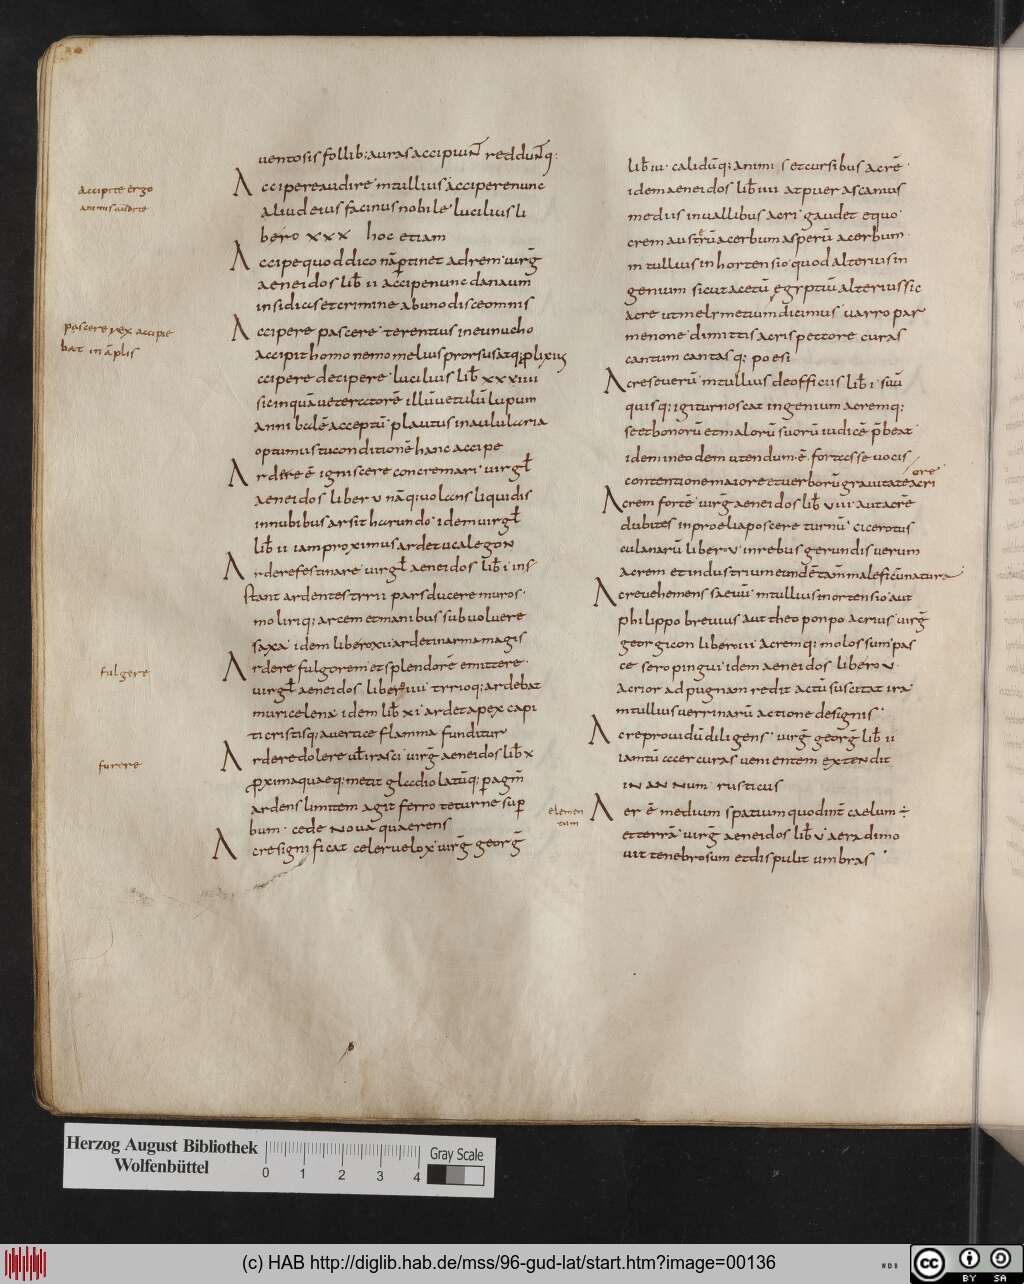 uentosis follib; auras accipiunt redduntq:
Accipere audire m tullius accipere nunc
aliud eius facinus nobile lucilius li
bero xxx hoc etiam
Accipe quod dico nā ptinet ad rem uirg̅
aeneidos lib̅ ii accipe nunc danaum̅
insidias et crimine ab uno disce omnis
Accipere pascere terentius in eunucho
accipit homo nemo melius prorsus atq; plixius
ccipere decipere lucilius lib̅ xxxiiii
sic inquā ueteratorē illū uetulū lupum
annibalē acceptū plautus in aulularia
optumus tu conditionē hanc accipe
Ardere ē igniscere concremari uirgł
aeneidos liber v nāq; uolans liquidis
in nubibus arsit harundo idem uirgł
lib̅ ii iam proximus ardet ucalegon
Ardere festinare uirgł aeneidos lib̅ i ins
tant ardentes tyrii pars ducere muros
moliriq; arcem et manibus subuoluere
saxa idem libero xii ardet in arma magis
Ardere fulgorem et splendorē emittere
uirgł aeneidos libero iiii tyrioq; ardebat
murice lena idem lib̅ xi ardet apex capi
ti cristisq; a uertice flamma funditur
Ardere dolere ul̅ irasci uirg̅ aeneidos lib̅ x
pxima quaeq; metit gladio latūq; p agm̅
ardens limitem agit ferro te turne sup
bum cede noua quaerens
Acre significat celer uelox uirg̅ georg̅
accipite ergo
animis audite
pascere rex accipie
bat in āplis
fulgere
furere
lib̅ iii calidūq; animis et cursibus acrē
idem aeneidos lib̅ iiii at puer ascanius
mediis in uallibus acri gaudet equo
crem austerū acerbum asperū acerbum
m tullius in hortensio quod alterius in
genium sicut acetū egyptiū alterius sic
acre ut mel ymetium dicimus uarro par
menone dimittis acris pectore curas
cantum cantasq; poesi
Acre seuerū m tullius de officiis lib̅ i suū
quisq; igitur noscat ingenium acremq;
se et bonorū et malorū suorū iudicē p̄beat
idem in eodem utendum ē fortasse uocis
contentione maiore et uerborū grauitate acri
ore
Acrem fortē uirg̅ aeneidos lib̅ viii aut acrē
dubites in proelia poscere turnū cicero tus
culanarū liber v in rebus gerundis uerum
acrem et industrium eundē tam maleficū natura
Acre uehemens saeuū m tullius in ortensio aut
philippo breuius aut theoponpo acrius uirg̅
georgicon libero iii acremq; molossum pas
ce sero pingui idem aeneidos libero v
acrior ad pugnam redit ac tū suscitat ira
m tullius uerrinarū actione designis
Acre prouidū diligens uirg̅ georg̅ lib̅ ii
iam tū acer curas uenientem extendit
in annum rusticus
Aer ē medium spatium quod int̅ caelum ÷
et terrā uirg̅ aeneidos lib̅ v aera dimo
uit tenebrosum et dispulit umbras
elemen
tum
Herzog August Bibliothek
Wolfenbüttel
0 1 2 3 4
Gray Scale
(c) HAB http://diglib.hab.de/mss/96-gud-lat/start.htm?image=00136
WDB
cc BY SA